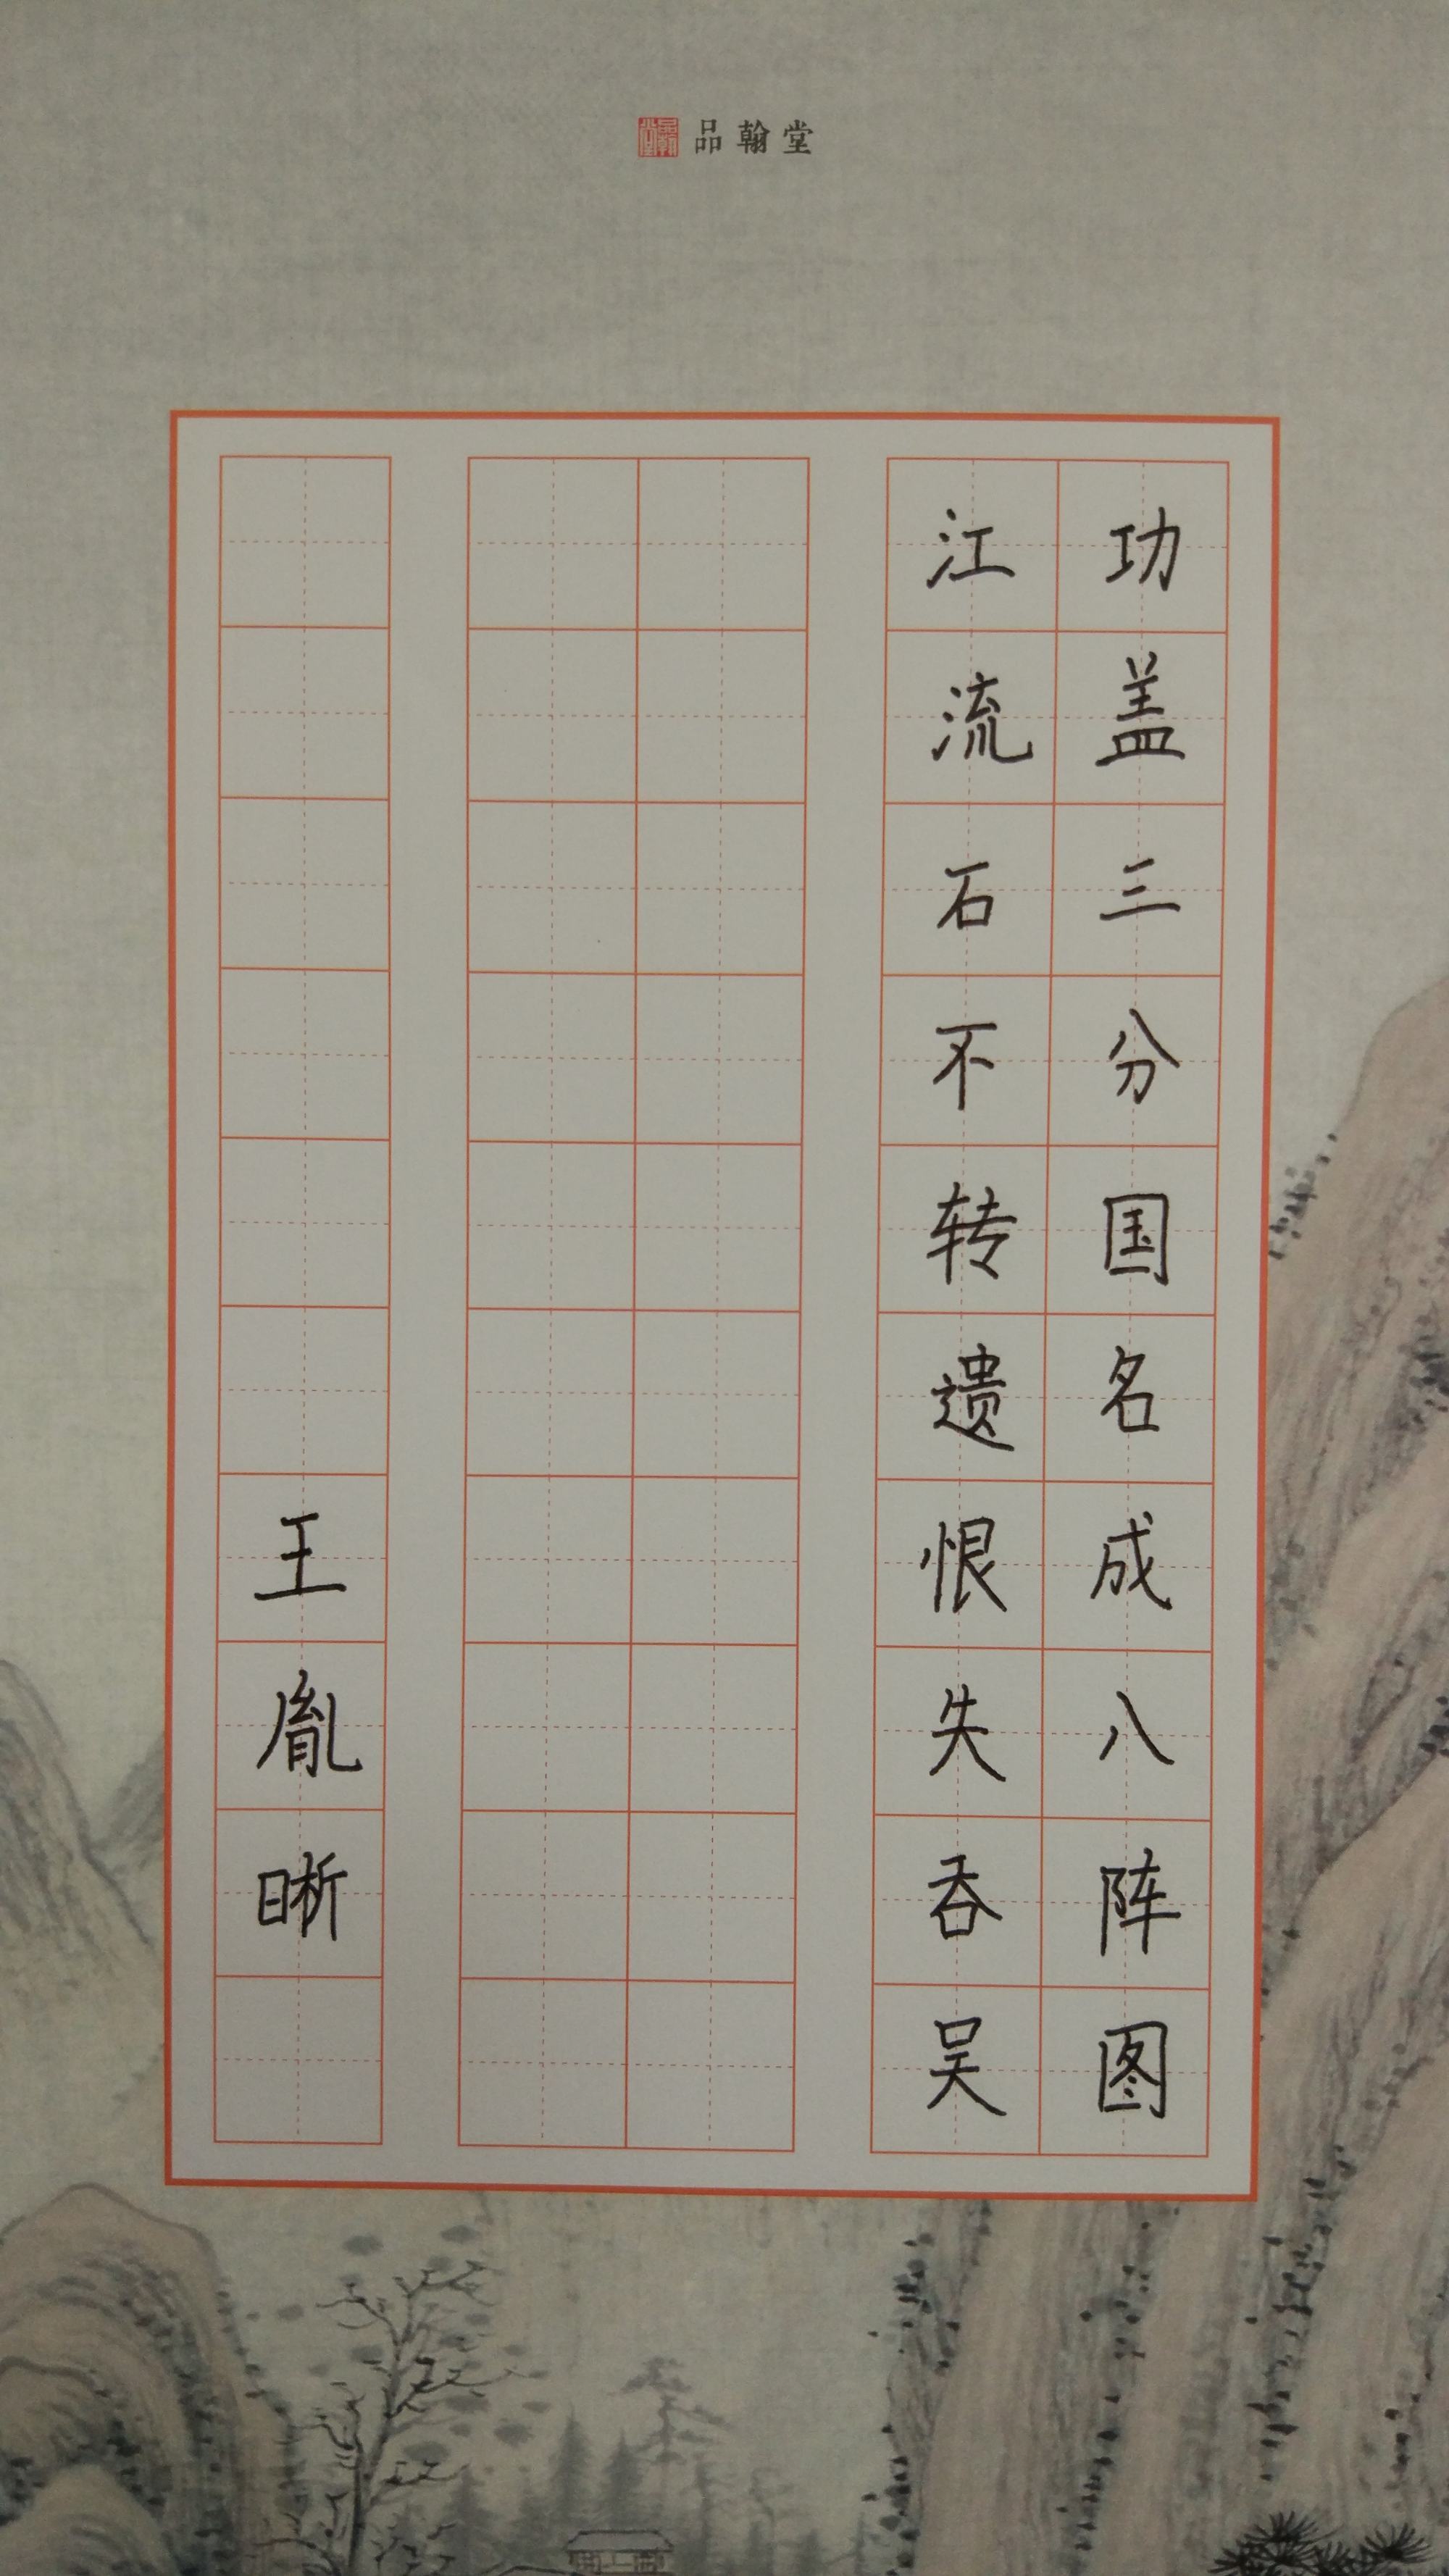 品翰堂
品翰堂
功盖三分国名成八阵图
江流石不转遗恨失吞吴
王胤晰